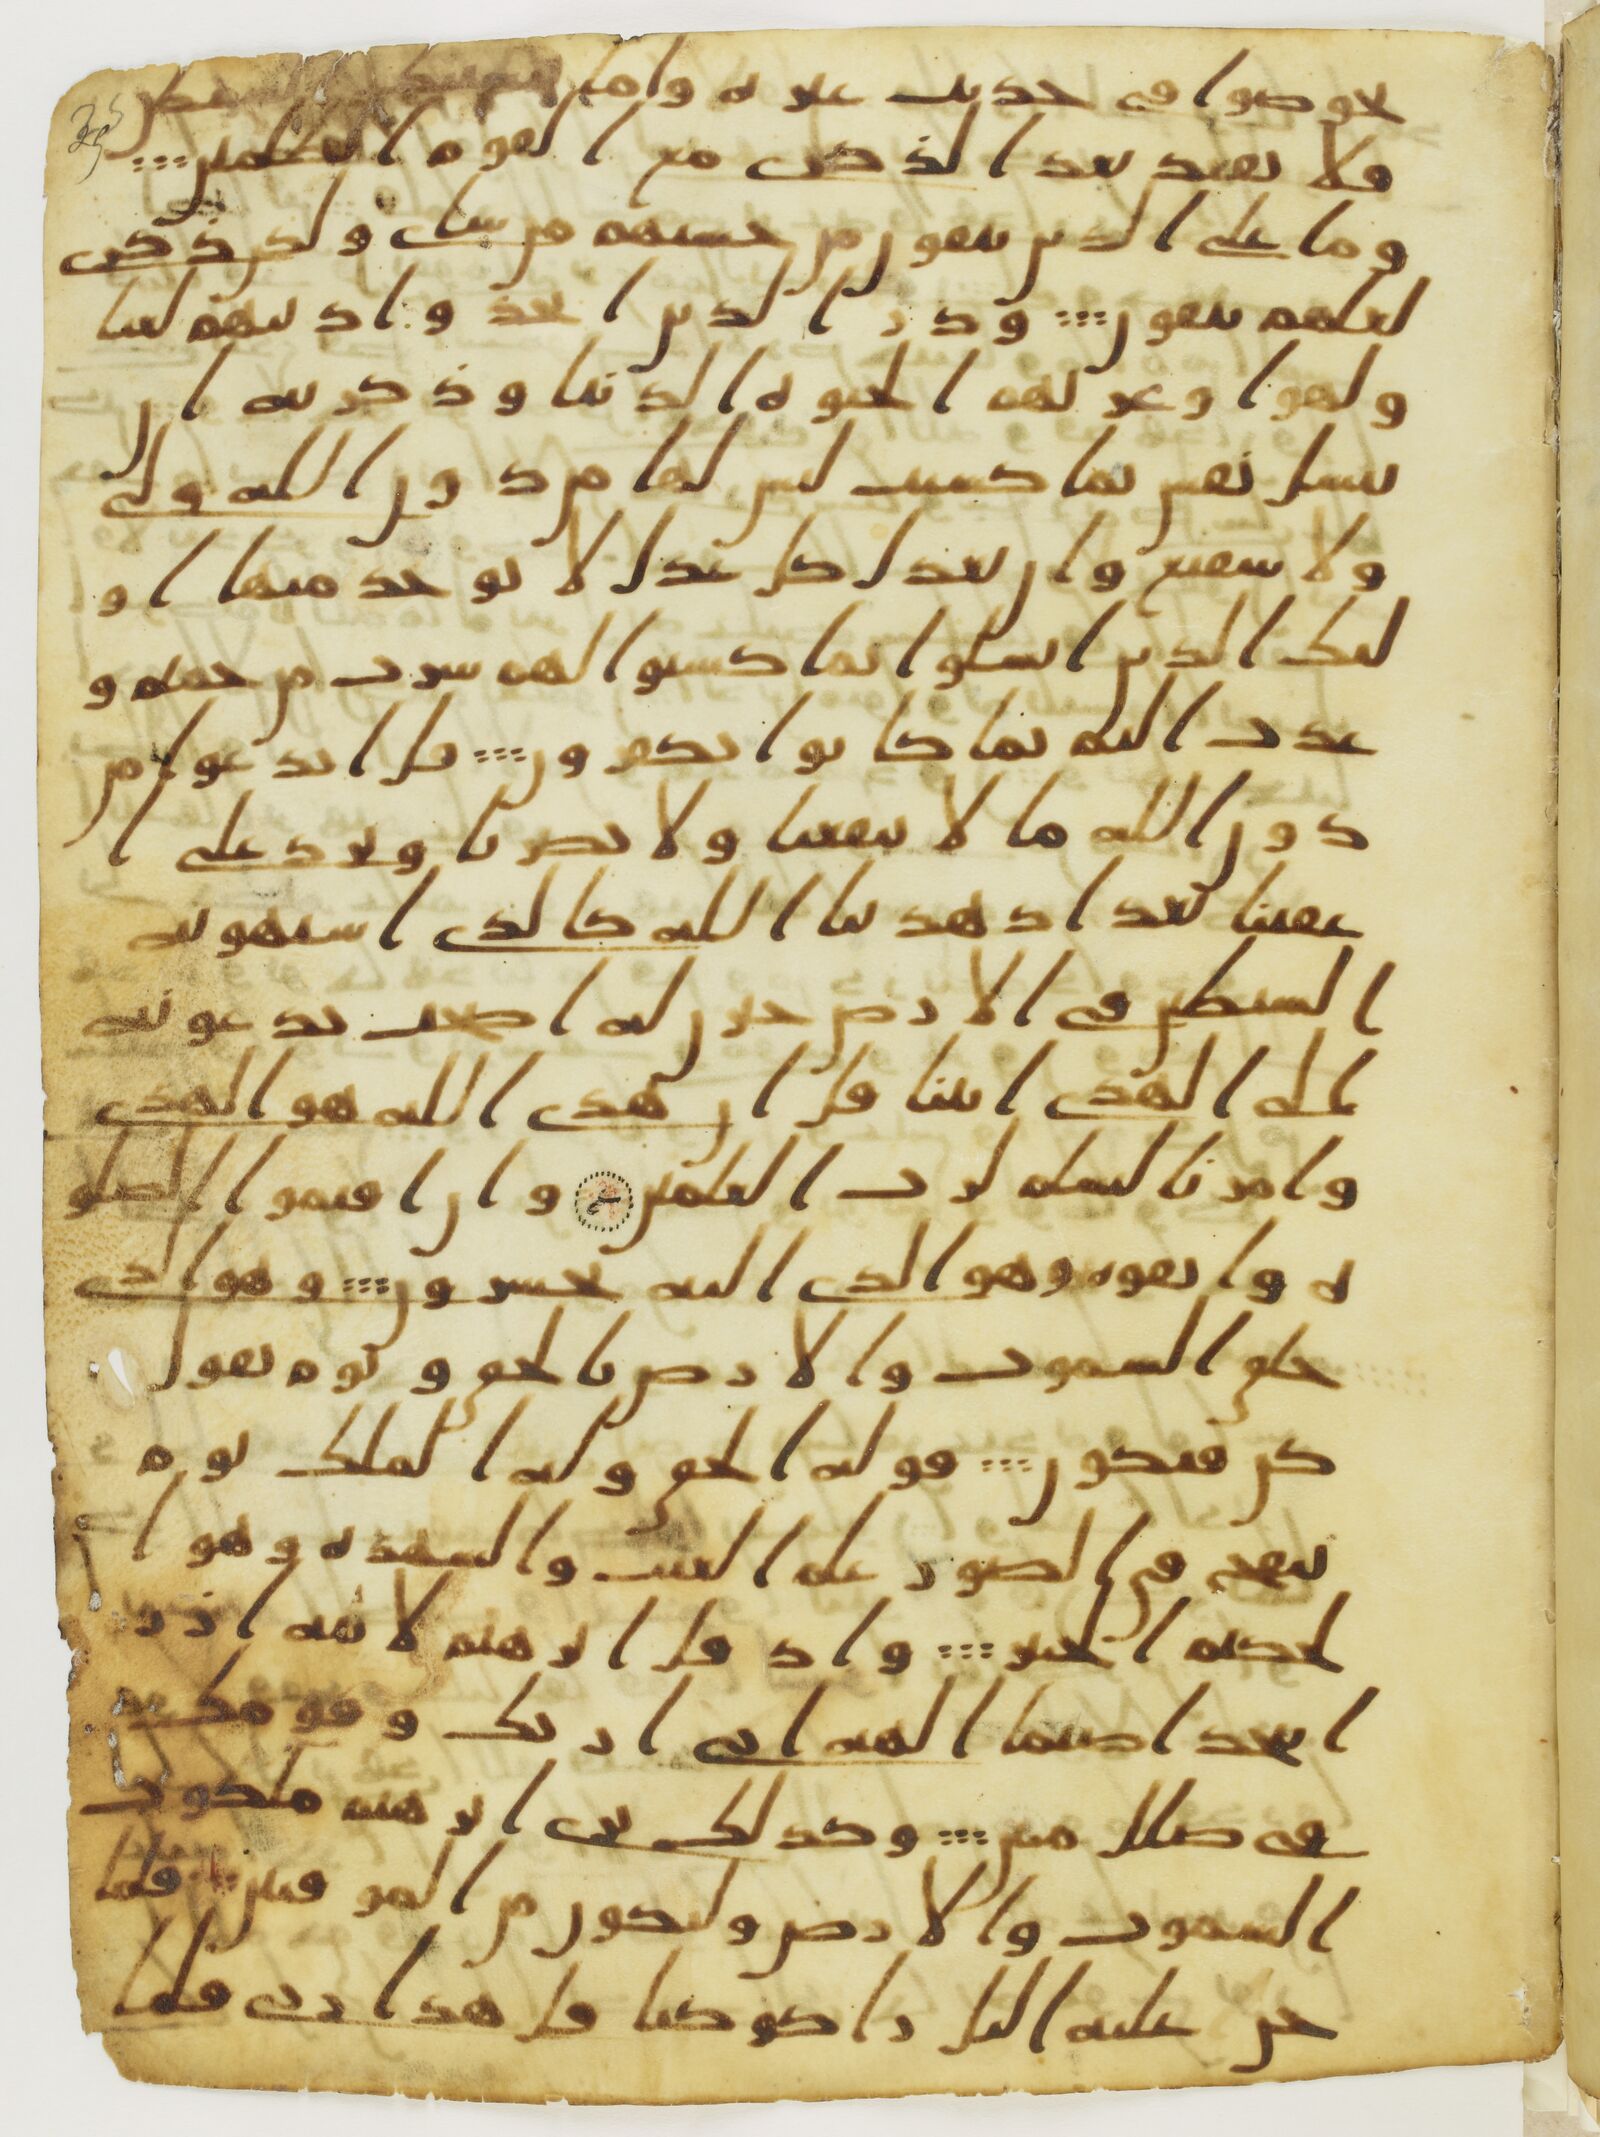 يخوضوا في حديث غيره واما ينسينك الشيطن
فلا تقعد بعد الذكرى مع القوم الظلمين
وما على الذين يتقون من حسبهم من شى ولكن ذكرى
لعلهم يتقون وذر الذين اتخذوا دينهم لعبا
ولهوا وغرتهم الحيوه الدنيا وذكر به ان
تبسل نفس بما كسبت ليس لها من دون الله ولى
ولا شفيع وان تعدل كل عدل لا يوخذ منها او
ليك الذين ابسلوا بما كسبوا لهم شرب من حميم و
عذب اليم بما كانوا يكفرون قل اندعوا من
دون الله ما لا ينفعنا ولا يضرنا ونرد على ا
عقبنا بعد اذ هدينا الله كالذى استهوته
الشيطين في الارض حيرن له اصحب يدعونه
الى الهدى ايتنا قل ان هدى الله هو الهدى
وامرنا لنسلم لرب العلمين وان اقيموا الصلو
ه واتقوه وهو الذى اليه تحشرون وهو الذى
خلق السموت والارض بالحق ويوم يقول
كن فيكون قوله الحق وله الملك يوم
ينفخ في الصور علم الغيب والشهده وهو ا
لحكيم الخبير واذ قل ابرهيم لابيه ازر
اتتخذ اصنما الهه انى اريك وقومك
في ضلل مبين وكذلك نرى ابرهيم ملكوت
السموت والارض وليكون من الموقنين فلما
جن عليه اليل را كوكبا قل هذا ربى فلما